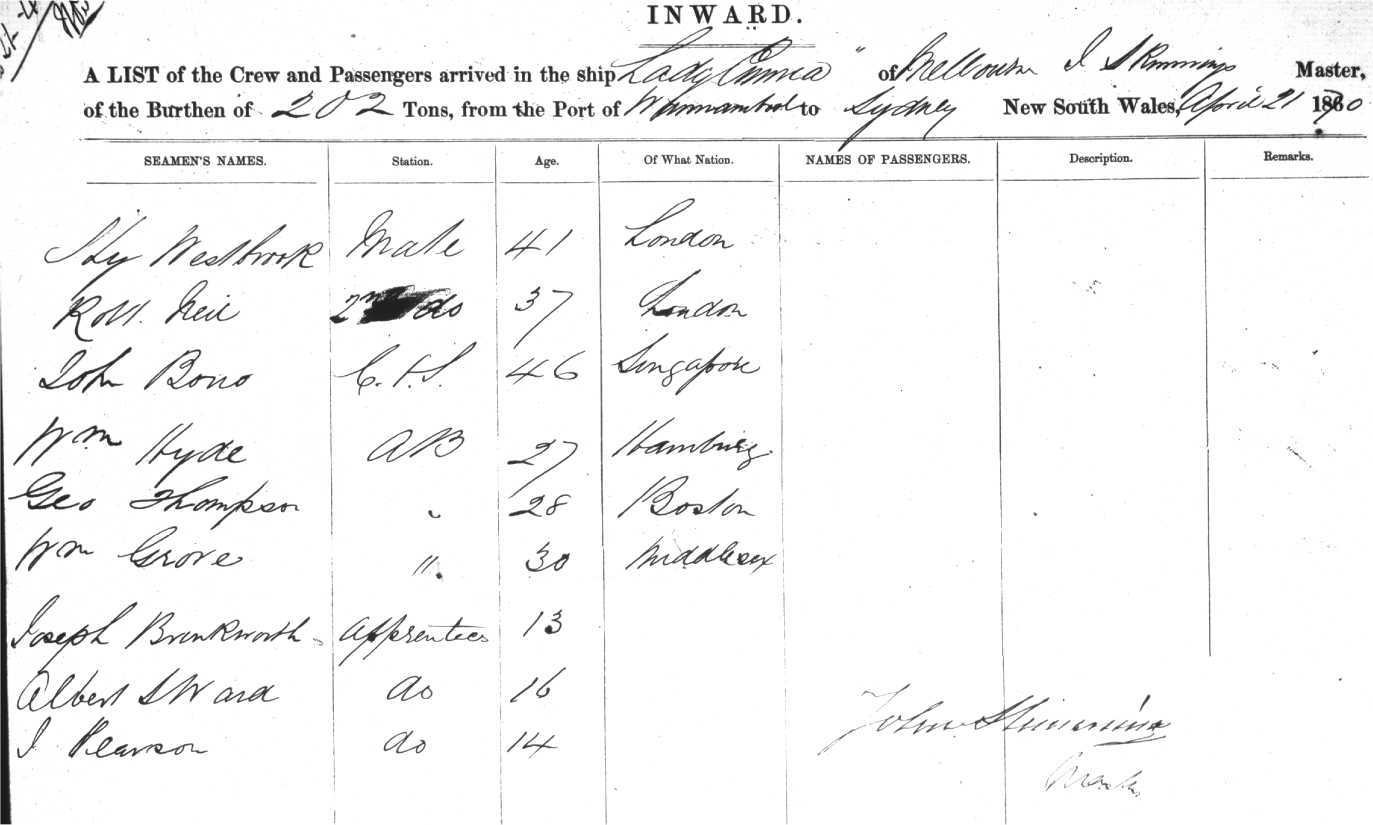 INWARD.
A LIST of the Crew and Passengers arrived in the ship Lady Emma " of Melbourne J Skimmings Master,
of the Burthen of 202 Tons, from the Port of Warrnambool to Sydney New South Wales, April 21 1870
SEAMEN'S NAMES. Station. Age. Of What Nation. NAMES OF PASSENGERS. Description. Remarks.
Hy Westbrook Mate 41 London
Robt. Neil 2nd do 37 London
John Bono C. & S. 46 Singapore
Wm Hyde AB 27 Hamburg
Geo Thompson " 28 Boston
Wm Grove " 30 Middlesex
Joseph Brenkworth Apprentees 13
Albert S Ward do 16
J Pearson do 14
John Skimmings
Master